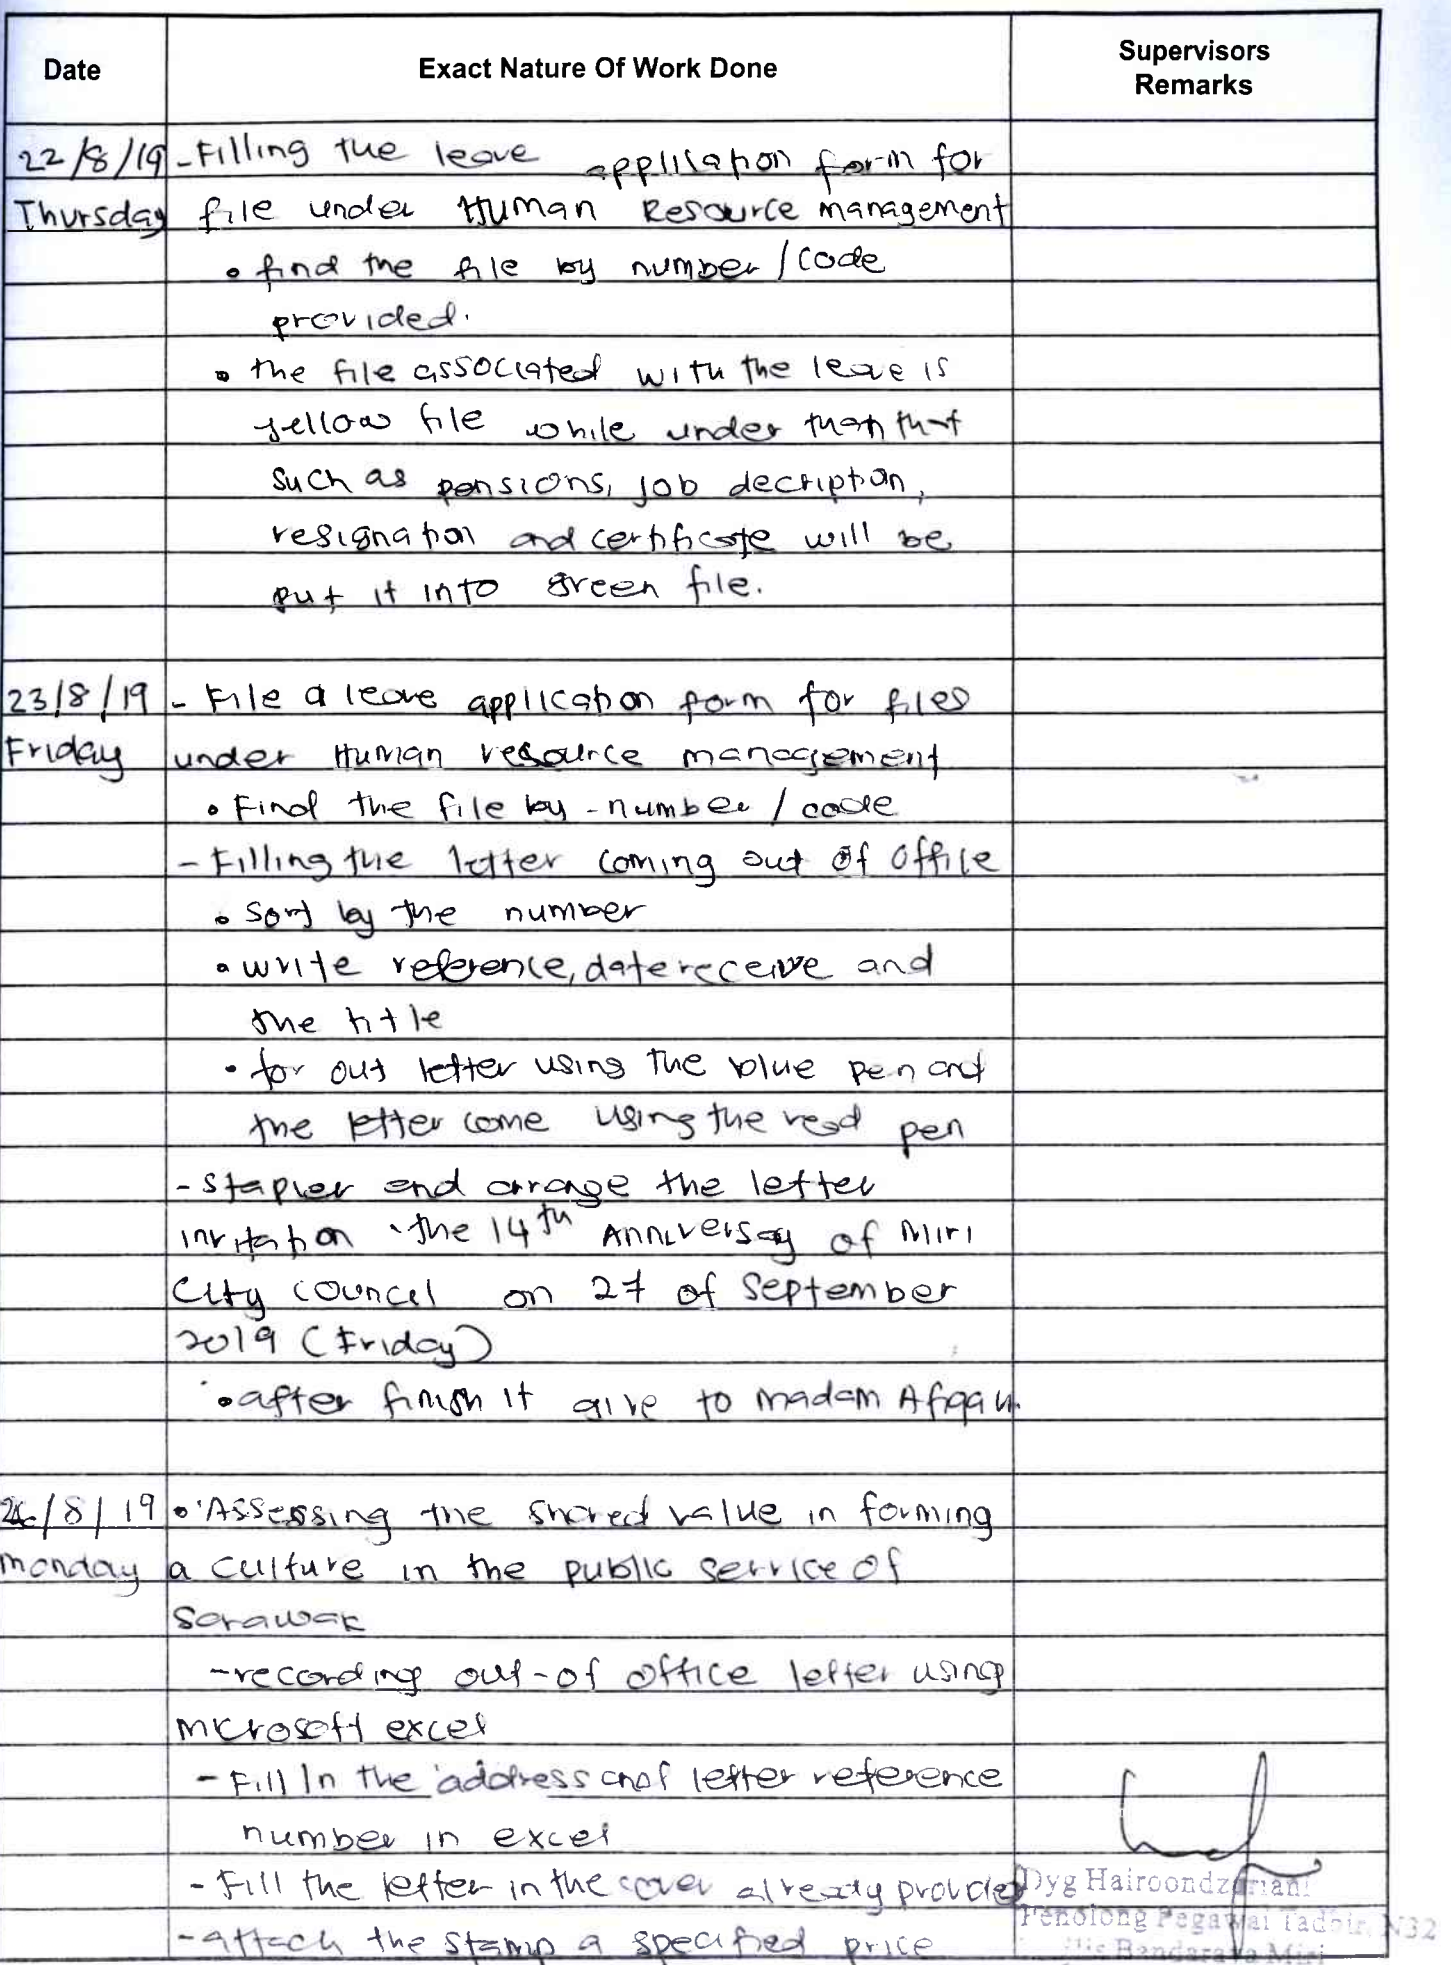 Date Exact Nature Of Work Done Supervisors
Remarks
22/8/19 - Filling the leave application form for
Thursday file under Human Resource management
• find the file by number / code
provided.
• the file associated with the leave is
yellow file while under than that
such as pensions, job decription,
resignation and certificate will be
put it into green file.
23/8/19 - File a leave application form for files
Friday under Human resource management
• Find the file by - number / code
- Filling the letter coming out of office
• sort by the number
• write reference, date receive and
the title
• for out letter using the blue pen and
the letter come using the read pen
- stapler and arrange the letter
invitation the 14th Anniversay of Miri
City council on 27 of September
2019 (Friday)
• after finish it give to madam Afiqah.
26/8/19 • Assessing the shared value in forming
monday a culture in the public service of
Sarawak
- recording out-of office letter using
microsoft excel
- Fill In the address and letter reference
number in excel
- Fill the letter in the cover already provided
- attach the stamp a specified price
Dyg Hairoondzariani
Penolong Pegawai Tadbir, N32
Bandaraya Miri